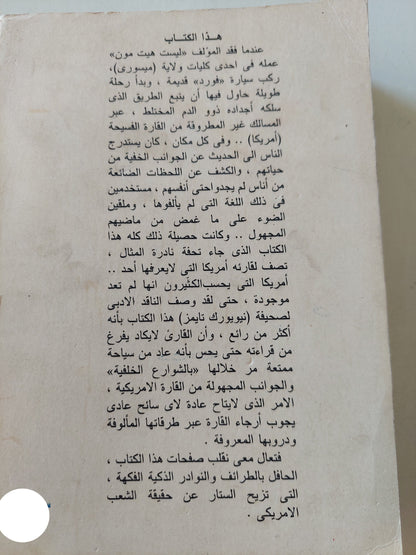 هذا الكتاب
عندما فقد المؤلف «ليست هيت مون»
عمله فى احدى كليات ولاية (ميسورى)،
ركب سيارة «فورد» قديمة ، وبدأ رحلة
طويلة حاول فيها أن يتبع الطريق الذى
سلكه أجداده ذوو الدم المختلط ، عبر
المسالك غير المطروقة من القارة الفسيحة
(أمريكا) .. وفى كل مكان ، كان يستدرج
الناس الى الحديث عن الجوانب الخفية من
حياتهم ، والكشف عن اللحظات الضائعة
من أناس لم يجدواحتى أنفسهم ، مستخدمين
فى ذلك اللغة التى لم يألفوها ، وملقين
الضوء على ما غمض من ماضيهم
المجهول .. وكانت حصيلة ذلك كله هذا
الكتاب الذى جاء تحفة نادرة المثال ،
تصف لقارئه أمريكا التى لايعرفها أحد ..
أمريكا التى يحسب‌الكثيرون انها لم تعد
موجودة ، حتى لقد وصف الناقد الادبى
لصحيفة (نيويورك تايمز) هذا الكتاب بأنه
أكثر من رائع ، وأن القارئ لايكاد يفرغ
من قراءته حتى يحس بأنه عاد من سياحة
ممتعة مر خلالها «بالشوارع الخلفية»
والجوانب المجهولة من القارة الامريكية ،
الامر الذى لايتاح عادة لاى سائح عادى
يجوب أرجاء القارة عبر طرقاتها المألوفة
ودروبها المعروفة .
فتعال معى نقلب صفحات هذا الكتاب ،
الحافل بالطرائف والنوادر الذكية الفكهة ،
التى تزيح الستار عن حقيقة الشعب
الامريكى .